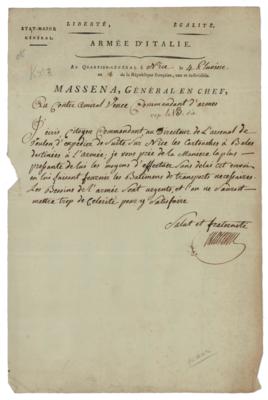 LIBERTÉ, ÉGALITÉ.
ÉTAT-MAJOR
GÉNÉRAL.
ARMÉE D'ITALIE.
AU QUARTIER-GÉNÉRAL à Nice le 4 Pluviose
an de la République française, une et indivisible.
MASSENA, GÉNÉRAL EN CHEF,
Au Contre Amiral Vence Commandant d'armes
J'écris Citoyen Commandant au Directeur de L'arsenal de
Toulon d'expédier de Suite sur Nice les Cartouches à Bales
destinées à L'armée; je vous prie de la Maniere la plus
pressante de lui les moyens d'effectuer Sans delai cet envoi
en lui faisant fournir les Batimens de transports necessaires.
Les Besoins de l'armée Sont urgents, et l'on ne Saurait
mettre trop de Celerité pour y Satisfaire
Salut et fraternité